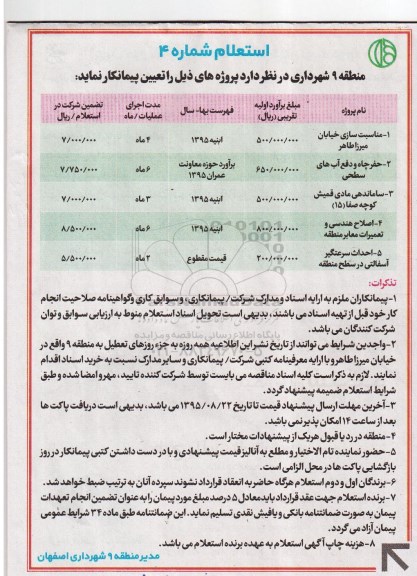 استعلام شماره ۴
منطقه ۹ شهرداری در نظر دارد پروژه های ذیل را تعیین پیمانکار نماید:
نام پروژه	مبلغ برآورد اولیه تقریبی (ریال)	فهرست بها - سال	مدت اجرای عملیات / ماه	تضمین شرکت در استعلام / ریال
۱-مناسبت سازی خیابان میرزاطاهر	۵۰۰/۰۰۰/۰۰۰	ابنیه ۱۳۹۵	۴ ماه	۷/۰۰۰/۰۰۰
۲-حفر چاه و دفع آب های سطحی	۶۵۰/۰۰۰/۰۰۰	برآورد حوزه معاونت عمران ۱۳۹۵	۶ ماه	۷/۷۵۰/۰۰۰
۳-ساماندهی مادی قمیش کوچه صفا (۱۵)	۵۰۰/۰۰۰/۰۰۰	ابنیه ۱۳۹۵	۳ ماه	۷/۰۰۰/۰۰۰
۴-اصلاح هندسی و تعمیرات معابر منطقه	۸۰۰/۰۰۰/۰۰۰	ابنیه ۱۳۹۵	۶ ماه	۸/۵۰۰/۰۰۰
۵-احداث سرعتگیر آسفالتی در سطح منطقه	۲۰۰/۰۰۰/۰۰۰	قیمت مقطوع	۲ ماه	۵/۵۰۰/۰۰۰
تذکرات:
۱-پیمانکاران ملزم به ارایه اسناد و مدارک شرکت / پیمانکاری، و سوابق کاری و گواهینامه صلاحیت انجام
کار خود قبل از تهیه اسناد می باشند، بدیهی است تحویل اسناد استعلام منوط به ارزیابی سوابق و توان
شرکت کنندگان می باشد.
۲-واجدین شرایط می توانند از تاریخ نشر این اطلاعیه همه روزه به جز روزهای تعطیل به منطقه ۹ واقع در
خیابان میرزا طاهر و با ارایه معرفینامه کتبی شرکت / پیمانکاری و سایر مدارک نسبت به خرید اسناد اقدام
نمایند. لازم به ذکر است کلیه اسناد مناقصه می بایست توسط شرکت کننده تایید، مهر و امضا شده و طبق
شرایط استعلام ضمیمه پیشنهاد گردد.
۳-آخرین مهلت ارسال پیشنهاد قیمت تا تاریخ ۱۳۹۵/۰۸/۲۲ می باشد، بدیهی است دریافت پاکت ها
بعد از ساعت ۱۴ امکان پذیر نمی باشد.
۴-منطقه در رد یا قبول هر یک از پیشنهادات مختار است.
۵-حضور نماینده تام الاختیار و مطلع به آنالیز قیمت پیشنهادی و با در دست داشتن کتبی پیمانکار در روز
بازگشایی پاکت ها در محل الزامی است.
۶-برندگان اول و دوم استعلام هرگاه حاضر به انعقاد قرارداد نشوند سپرده آنان به ترتیب ضبط خواهد شد.
۷-برنده استعلام جهت عقد قرارداد باید معادل ۵ درصد مبلغ مورد پیمان را به عنوان تضمین انجام تعهدات
پیمان به صورت ضمانتنامه بانکی و یا فیش نقدی تسلیم نماید. این ضمانتنامه طبق ماده ۳۴ شرایط عمومی
پیمان آزاد می گردد.
۸-هزینه چاپ آگهی استعلام به عهده برنده استعلام می باشد.
مدیر منطقه ۹ شهرداری اصفهان